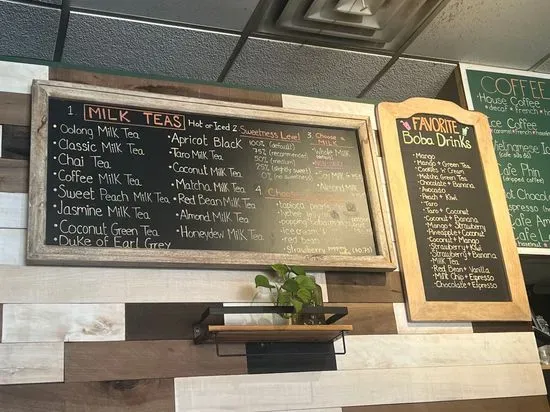 1. MILK TEAS Hot or Iced
Oolong Milk Tea
Classic Milk Tea
Chai Tea
Coffee Milk Tea
Sweet Peach Milk Tea
Jasmine Milk Tea
Coconut Green Tea
Duke of Earl Grey
Apricot Black
Taro Milk Tea
Coconut Milk Tea
Matcha Milk Tea
Red Bean Milk Tea
Almond Milk Tea
Honeydew Milk Tea
2 Sweetness Level
100% (default)
75% (recommended)
50% (medium)
25% (slightly sweet)
0% (no sweetness)
3 Choose a
MILK
Whole Milk
Soy Milk
Almond Milk
4
tapioca pearls
lychee jelly
popping
ice cream
red bean
strawberry
FAVORITE
Boba Drinks
Mango
Mango + Green Tea
Cookies 'n' Cream
Matcha Green Tea
Chocolate + Banana
Avocado
Peach + Kiwi
Taro
Taro + Coconut
Coconut + Banana
Mango + Strawberry
Pineapple + Coconut
Coconut + Mango
Strawberry + Kiwi
Strawberry + Banana
Milk Tea
Red Bean + Vanilla
Milk Chip + Espresso
Chocolate + Espresso
COFFEE
House Coffee
decaf + french
Ice Coffee
Vietnamese
Cafe Phin
Hot Chocolat
Espresso
Cafe L